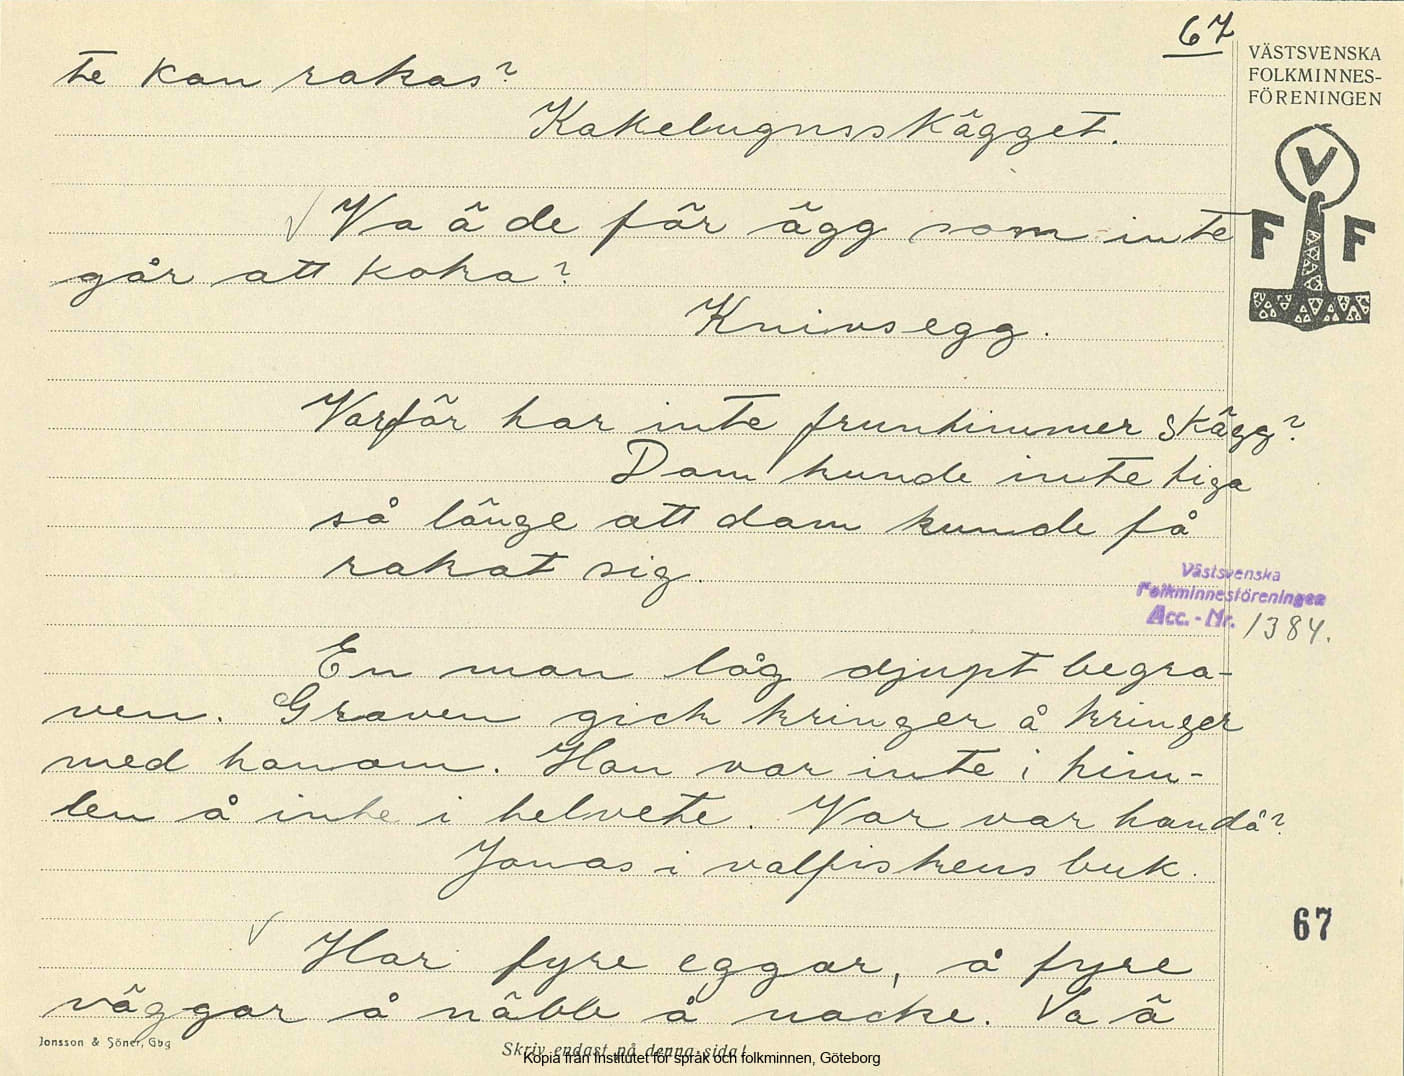 67
VÄSTSVENSKA
FOLKMINNES-
FÖRENINGEN
V
F F
te kan rakas?
Kakelugnsskägget.
Va ä de för ägg som inte
går att koka?
Knivsegg.
Varför har inte fruntimmer skägg?
Dom kunde inte tiga
så länge att dom kunde få
rakat sig.
Västsvenska
Folkminnesföreningen
Acc.-Nr. 1384.
En man låg djupt begra-
ven. Graven gick kringer å kringer
med honom. Han var inte i him-
len å inte i helvete. Var var han då?
Jonas i valfiskens buk.
67
Har fyre eggar, å fyre
väggar å näbb å nacke. Va ä
Jonsson & Söner, Gbg
Skriv endast på denna sida!
Kopia från Institutet för språk och folkminnen, Göteborg